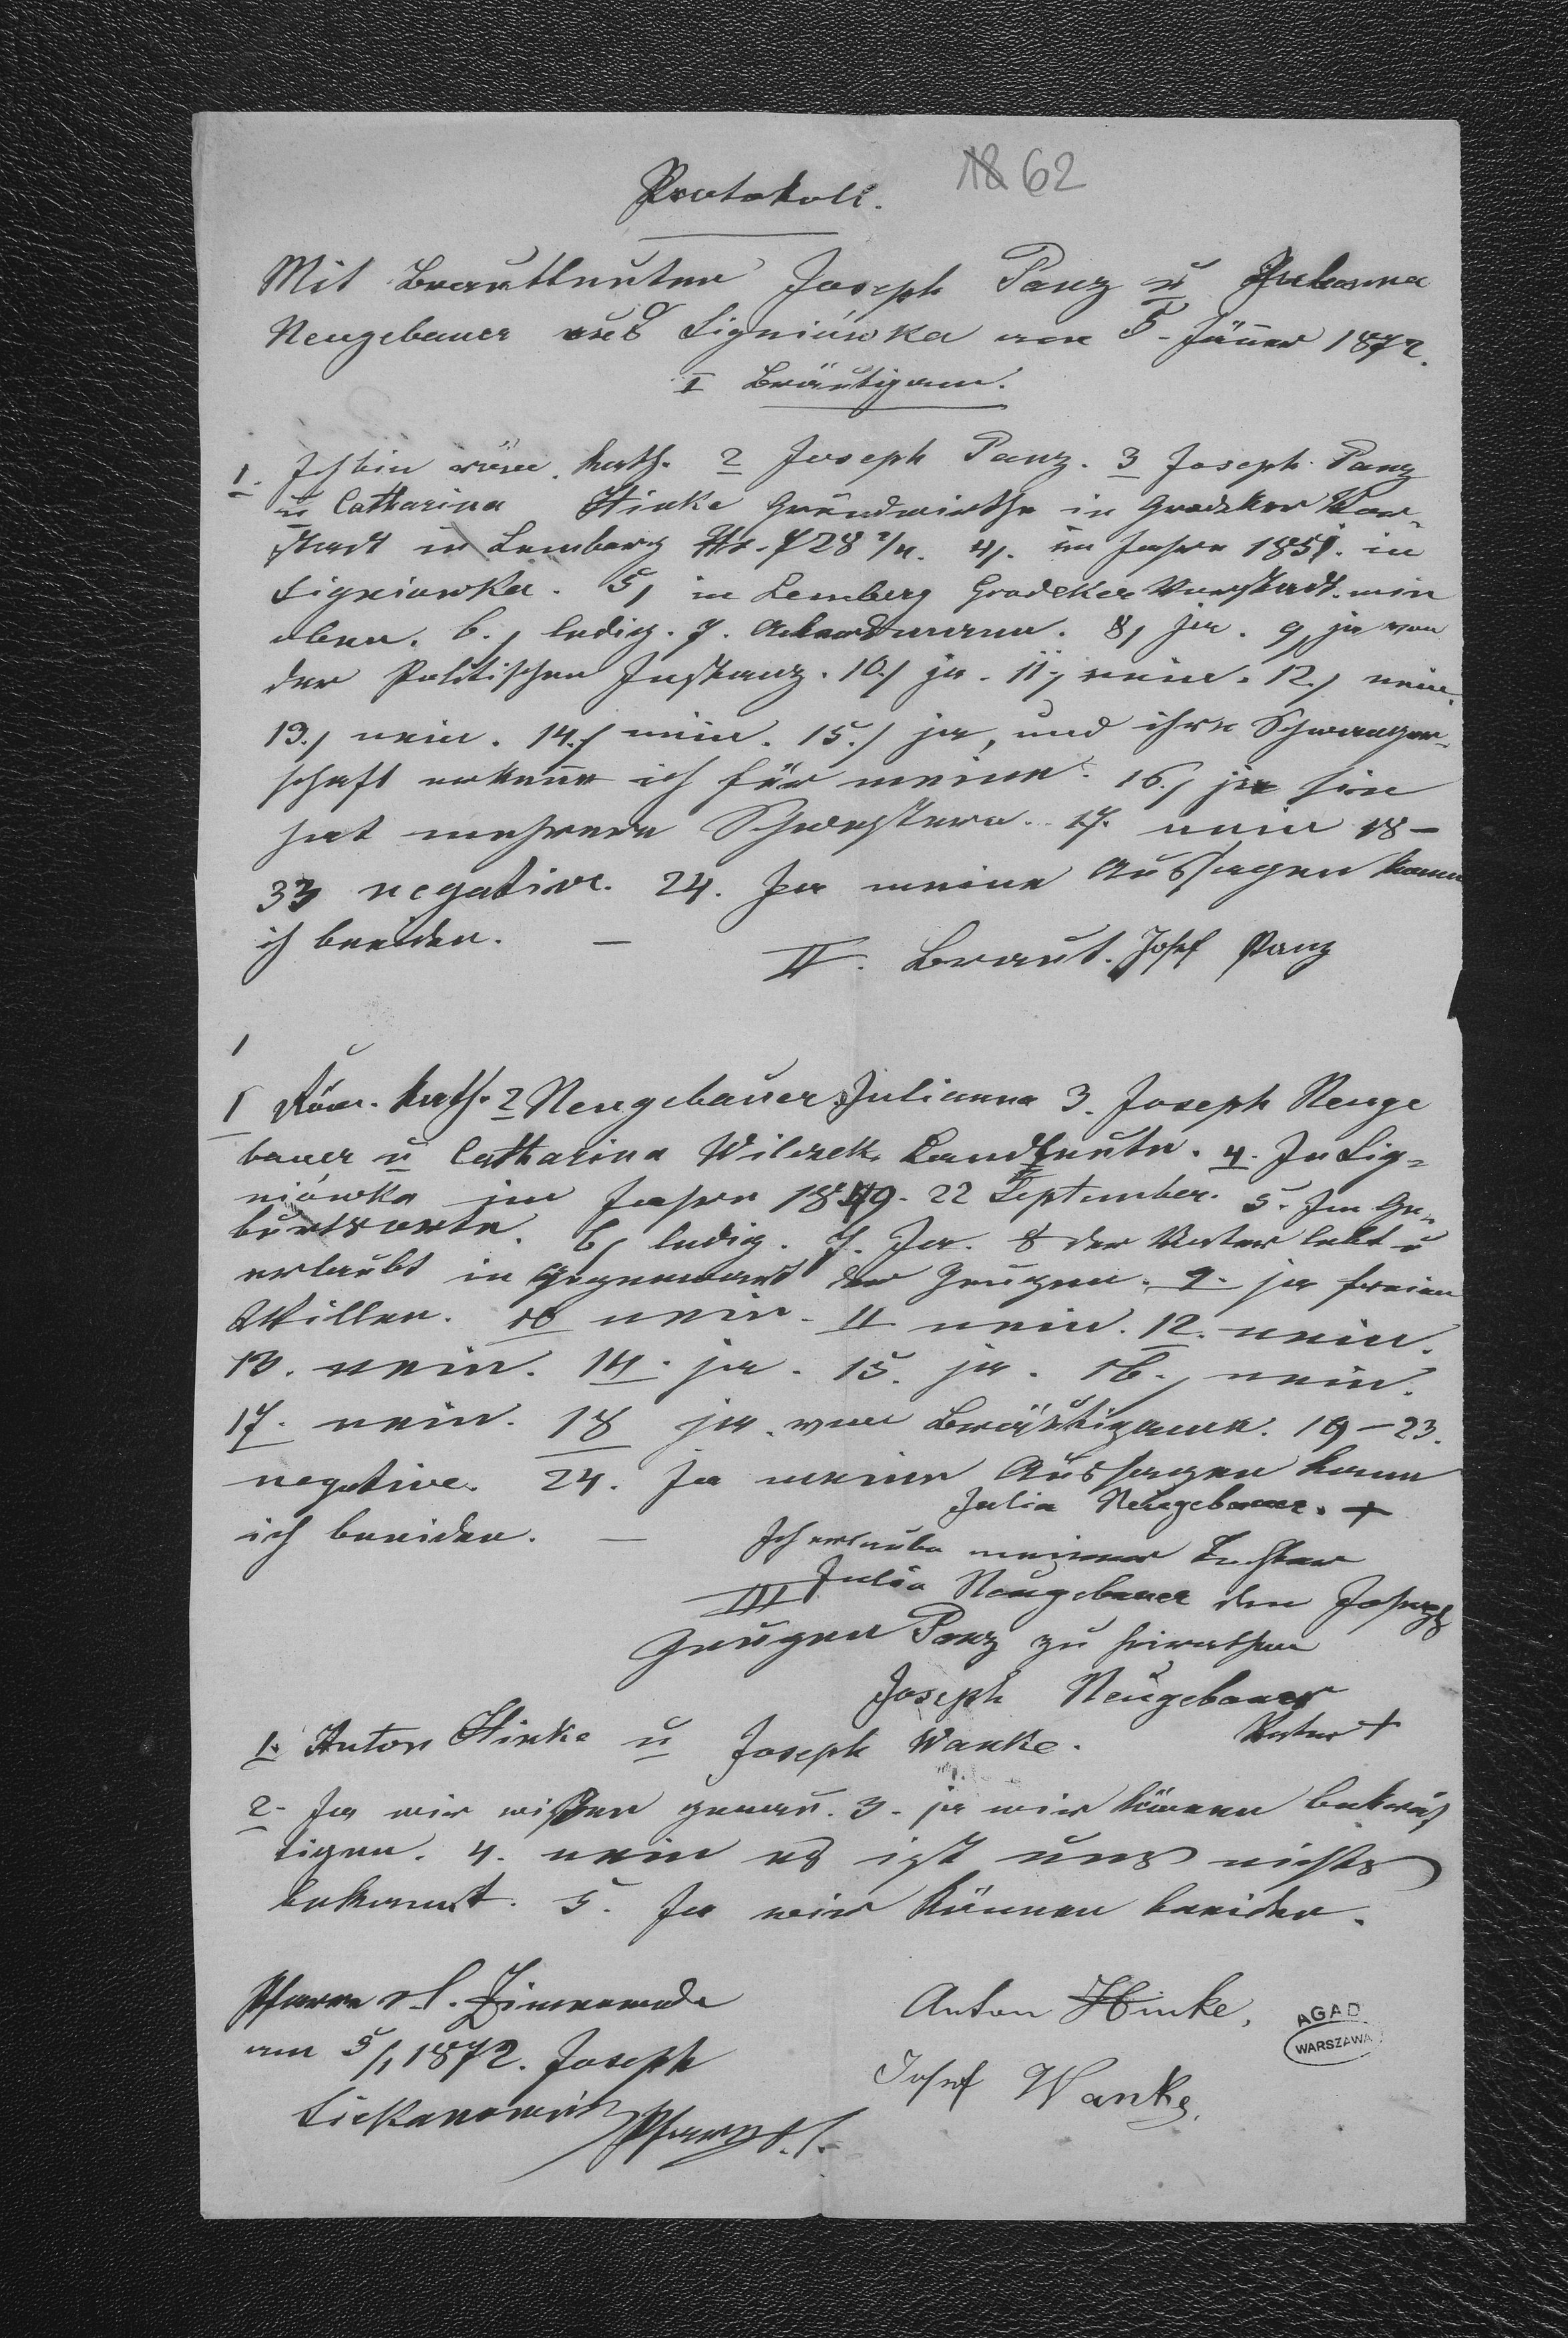 Protokoll.
18 62
Mit Brautleuten Joseph Panz u Julianna
Neugebauer aus Ligniówka am 5. Jänner 1872.
I Bräutigam.
1. Ich bin röm. kath. 2 Joseph Panz. 3 Joseph Panz
u Catharina Hinke Grundwirthe in Grodeker Vor-
stadt in Lemberg Nr. 728 2/4. 4/. im Jahre 1851. in
Ligniowka. 5/ in Lemberg Grodeker Vorstadt. wie
oben. 6./ ledig. 7. Ackersmann. 8/ ja. 9/ ja von
der Politischen Instanz. 10./ ja. 11/ nein. 12./ nein.
13./ nein. 14./ nein. 15./ ja, und ihre Schwanger-
schaft erkenne ich für meine. 16./ ja sie
hat mehrere Schwestern. 17. nein 18-
33 negative. 24. Ja meine Aussagen kann
ich beeiden. —
II. Braut. Josef Panz
1
1 Röm. kath. 2 Neugebauer Julianna 3. Joseph Neuge
bauer u Catharina Wilczek Landleute. 4. In Lig-
niówka im Jahre 1849. 22 September. 5. Im Ge-
burtsorte. 6/ ledig. 7. Ja. 8 der Vater lebt u
erlaubt in Gegenwart der Zeugen. 9. ja freien
Willen. 10 nein. 11 nein. 12. nein.
13. nein. 14. ja. 15. ja. 16./ nein.
17. nein. 18 ja. vom Bräutigame. 19-23.
negative. 24. Ja meine Aussagen kann
ich beeiden. —
Julia Neugebauer. +
Ich erlaube meiner Tochter
Julia Neugebauer den Joseph
III
Zeugen Panz zu heirathen
Joseph Neugebauer
Vater +
1. Anton Hinke u Joseph Wanke.
2. Ja wir wissen genau. 3. ja wir können bekräf
tigen. 4. nein es ist uns nichts
bekannt. 5. Ja wir können beeiden.
Pfarre r. l. Zimnawoda
am 5/1 1872. Joseph
Pfarrer r. l.
Anton Hinke,
Josef Wanke,
AGAD
WARSZAWA